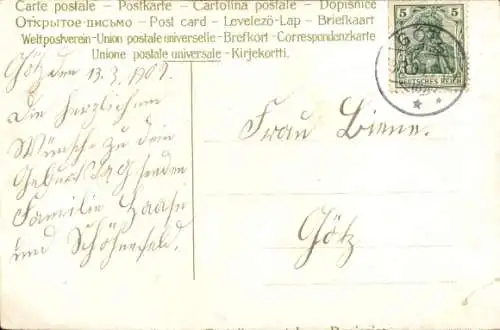 Carte postale – Postkarte – Cartolina postale – Dopisnice
Открытое письмо – Post card – Levelező-Lap – Briefkaart
Weltpostverein - Union postale universelle - Brefkort - Correspondenzkarte
Unione postale universale - Kirjekortti.
5 5
DEUTSCHES REICH
Götz den 13.3.1909.
Die herzlichen
Wünsche zu dein
Geburtstag senden
Familie Haase
und Schönefeld.
Frau Biene.
Götz